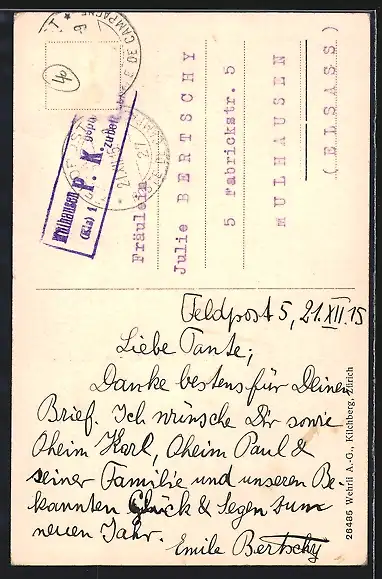 Fräulein
Julie BERTSCHY
5 Fabrickstr. 5
MULHAUSEN
(ELSASS)
DE CAMPAGNE
40
Mülhausen
(Els) 1
P. K.
Feldpost 5, 21.XII.15
Liebe Tante;
Danke bestens für Deinen
Brief. Ich wünsche Dir sowie
Oheim Karl, Oheim Paul &
seiner Familie und unseren Be-
kannten Glück & Segen zum
neuen Jahr.
Emile Bertschy
26485 Wehrli A.-G., Kilchberg, Zürich